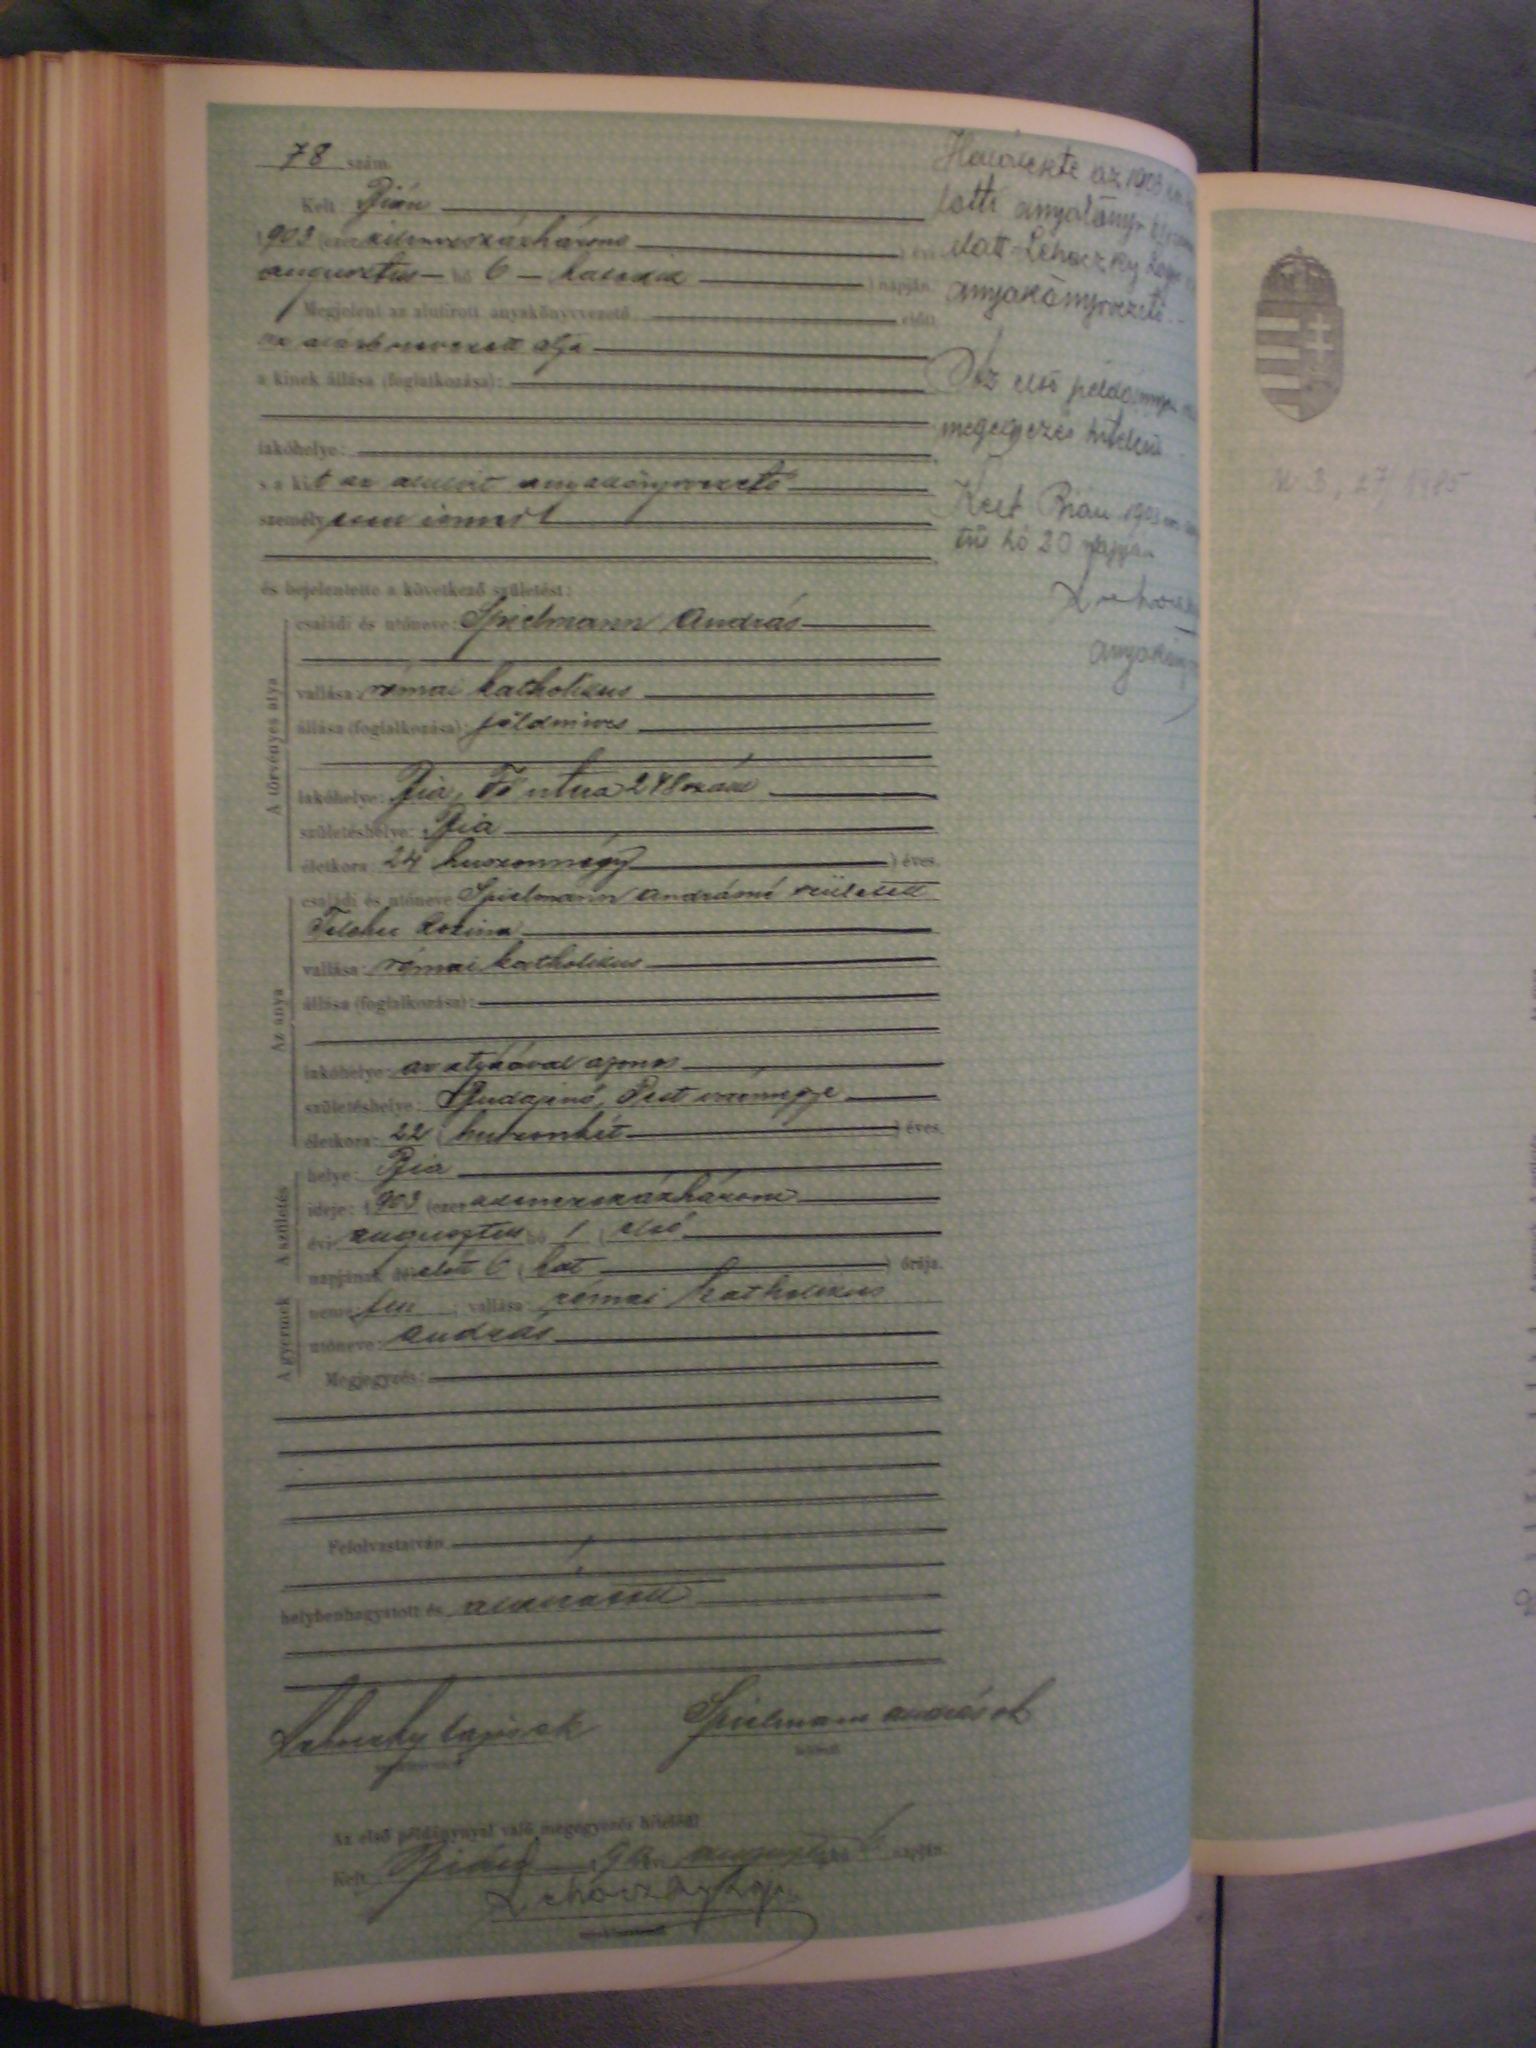 78 szám.
Kelt Bián
1903 (ezer kilencszázhárom ) évi
augusztus hó 6 hatodik ) napján.
Megjelent az alulirott anyakönyvvezető előtt
az alább nevezett atya
a kinek állása (foglalkozása):
lakóhelye:
s a kit az alulirt anyakönyvvezető
személyesen ismer
és bejelentette a következő születést:
A törvényes atya
családi és utóneve: Spielmann András
vallása: római katholikus
állása (foglalkozása): földmives
lakóhelye: Bia, Fő utca 248 szám
születéshelye: Bia
életkora: 24 huszonnégy ) éves.
Az anya
családi és utóneve Spielmann Andrásné született
Rozina
vallása: római katholikus
állása (foglalkozása):
lakóhelye: az atyáéval azonos
születéshelye: Budajenő, Pest vármegye
életkora: 22 ( huszonkét ) éves.
A születés
helye: Bia
ideje: 1903 (ezer kilencszázhárom
évi augusztus hó 1 ( első
napjának délelőtt 6 ( hat ) órája.
A gyermek
neme: fiu ; vallása: római katholikus
utóneve: András
Megjegyzés:
Felolvastatván
helybenhagyatott és aláiratott
Lehoczky Lajos sk Spielmann András sk
Az első példánynyal való megegyezés hiteléül
Kelt Bián 190 augusztus hó 6 napján.
Lehoczky Lajos
anyakönyvvezető
az 1903
alatt Lehoczky
anyakönyvvezető.
Az első
megegyezés hiteléül
Kelt Bián 1903
hó 20 napján
M. 3, 27/1985